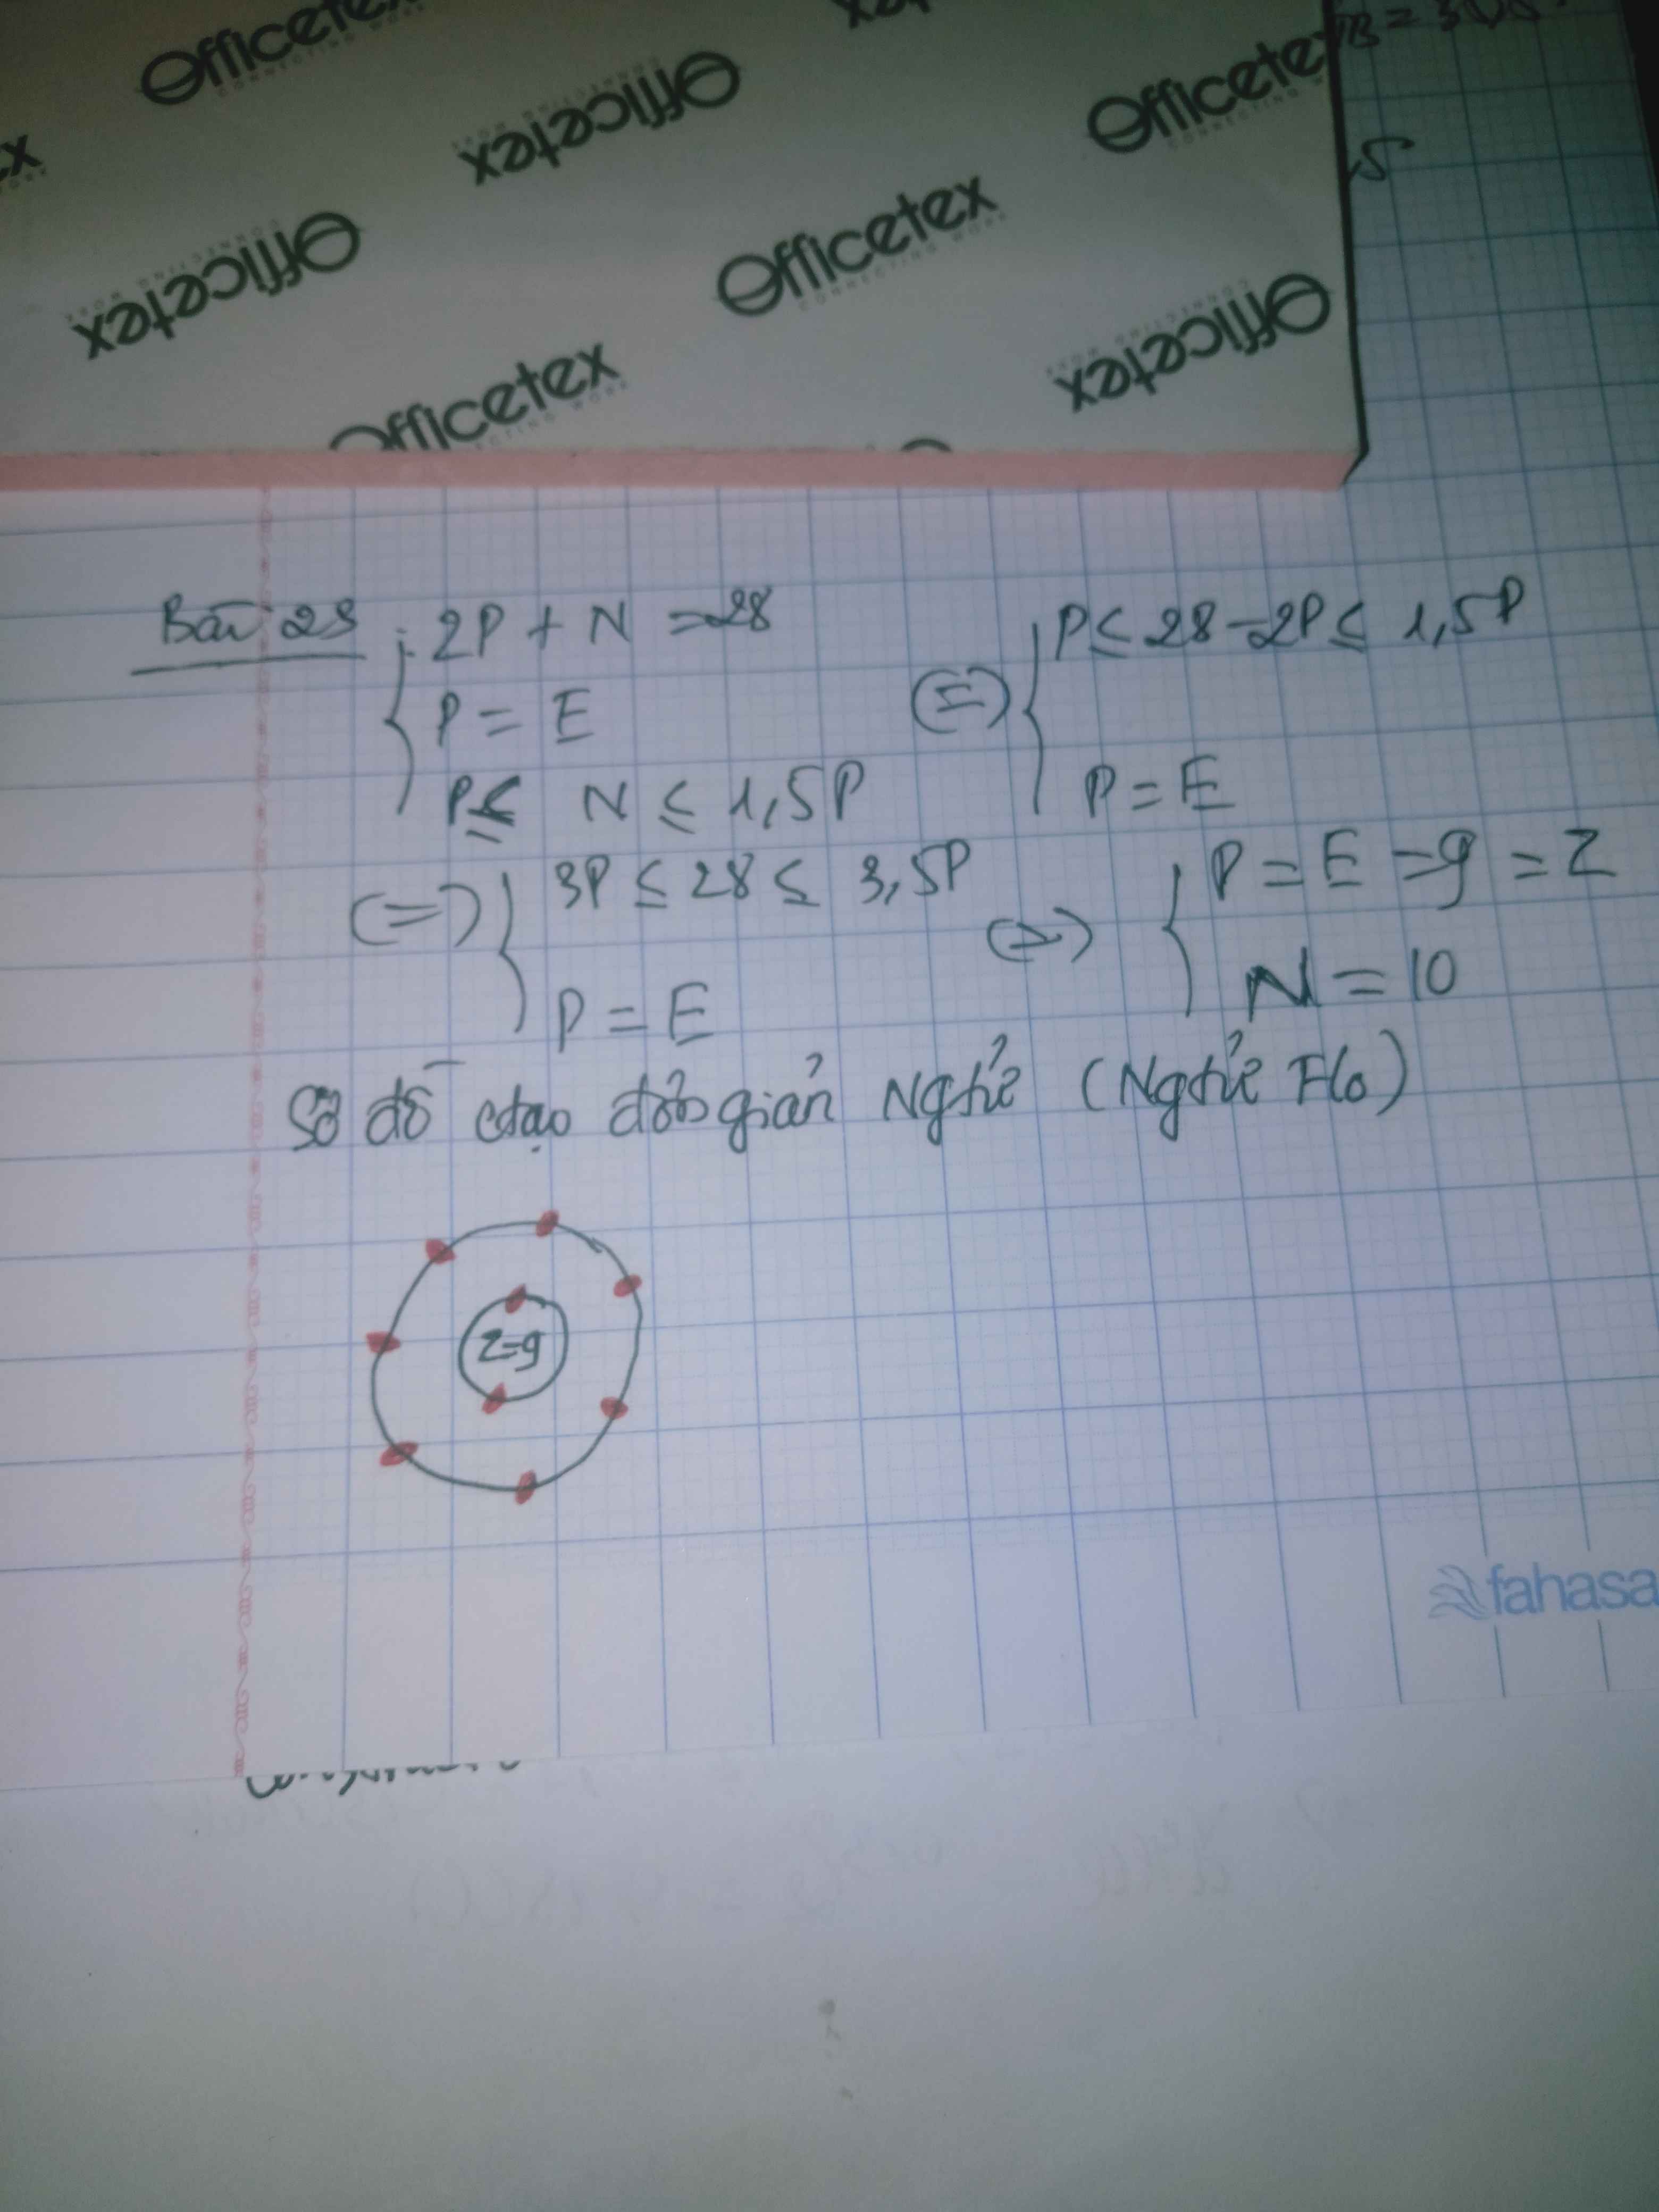 Officetex
CONNECTING WORK
Officetex
CONNECTING WORK
Officetex
CONNECTING WORK
Officetex
CONNECTING WORK
Officetex
CONNECTING WORK
Officetex
CONNECTING WORK
Officetex
5
Bài 23: 2P + N = 28
P = E
P ≤ N ≤ 1,5P
(=) P ≤ 28 - 2P ≤ 1,5P
P = E
(=) 3P ≤ 28 ≤ 3,5P
P = E
(=) P = E = 9 = Z
N = 10
Sơ đồ ctạo đơn giản Ngtử (Ngtử Flo)
Z=9
fahasa